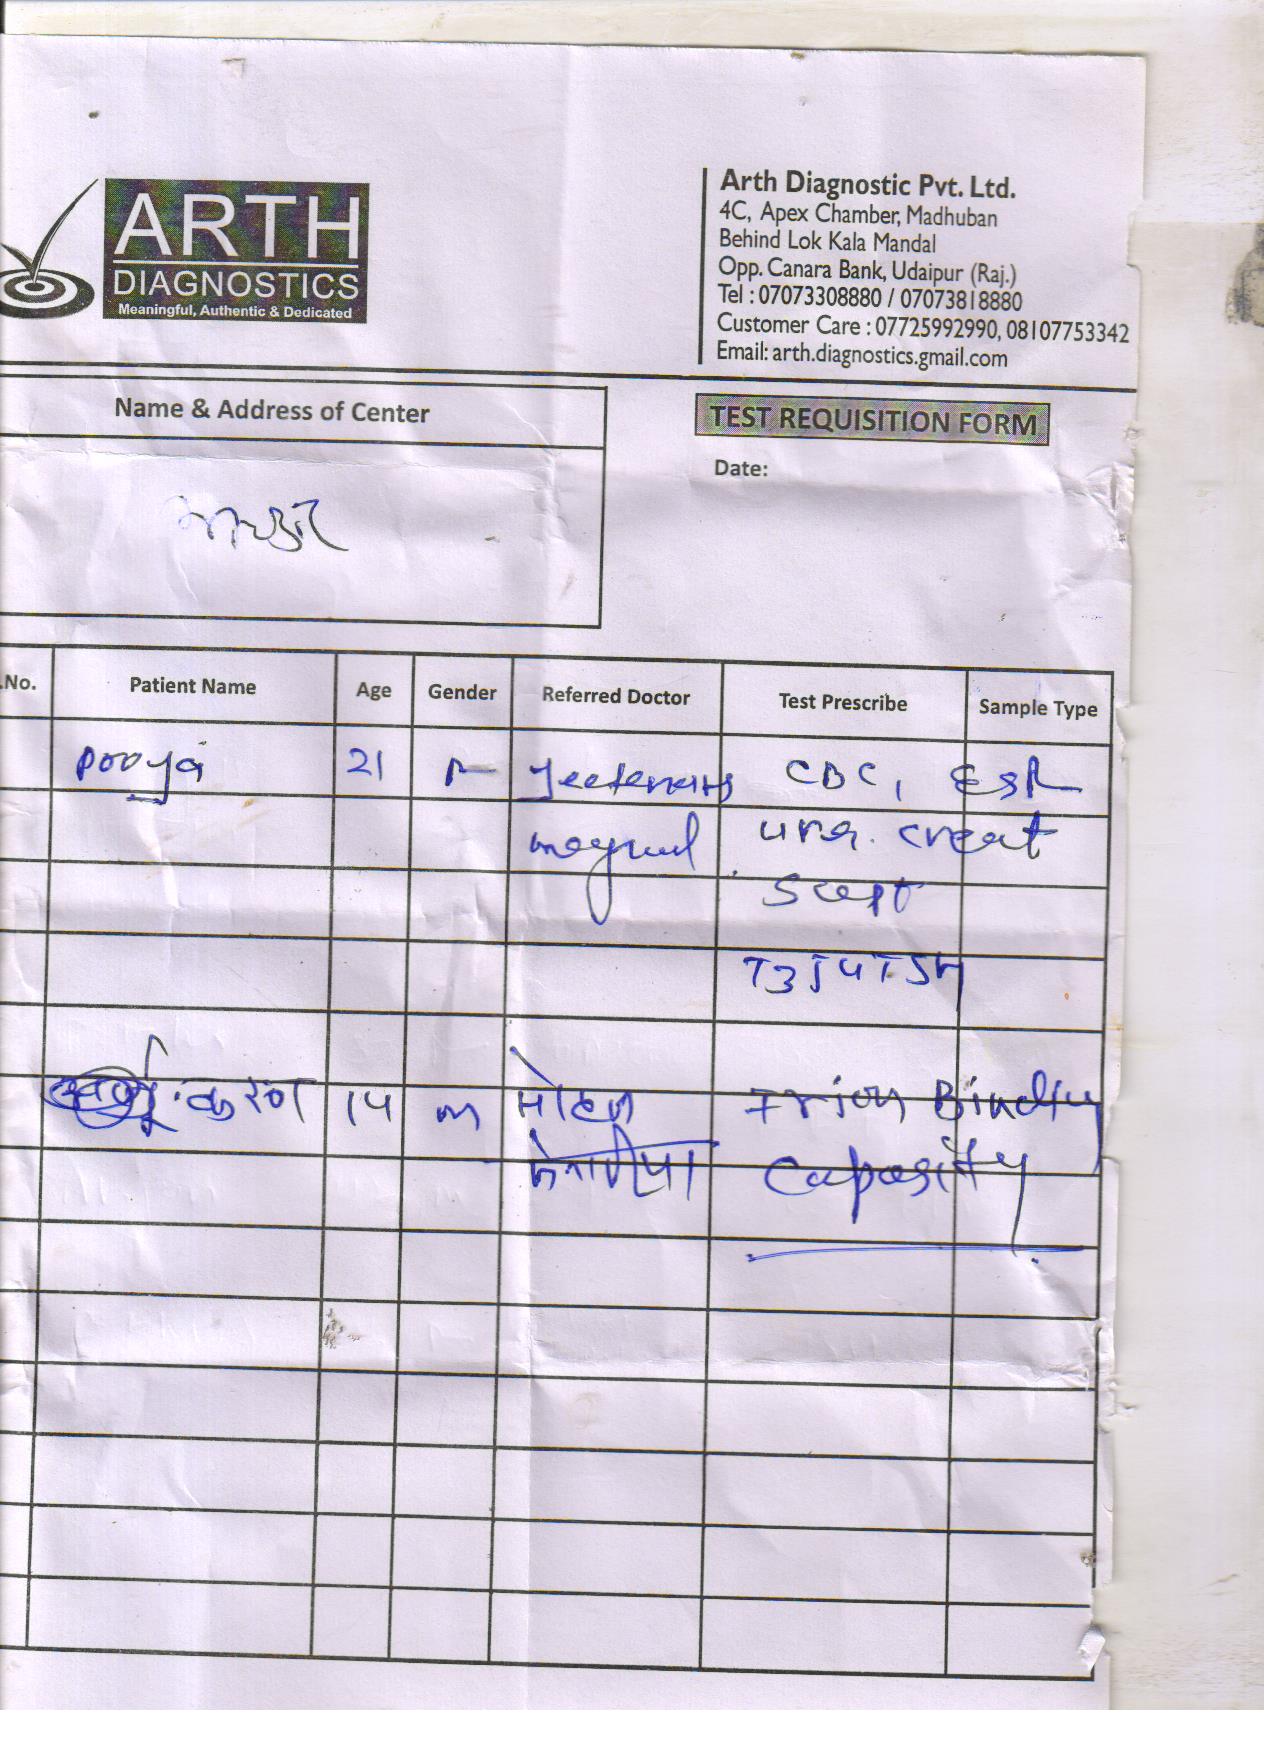 ARTH
DIAGNOSTICS
Meaningful, Authentic & Dedicated
Arth Diagnostic Pvt. Ltd.
4C, Apex Chamber, Madhuban
Behind Lok Kala Mandal
Opp. Canara Bank, Udaipur (Raj.)
Tel : 07073308880 / 07073818880
Customer Care : 07725992990, 08107753342
Email: arth.diagnostics.gmail.com
Name & Address of Center
TEST REQUISITION FORM
Date:
.No. Patient Name Age Gender Referred Doctor Test Prescribe Sample Type
Pooja 21 CBC, ESR
creat
T3 T4 TSH
करण 14 m मोहन Irion Binding
Capasity